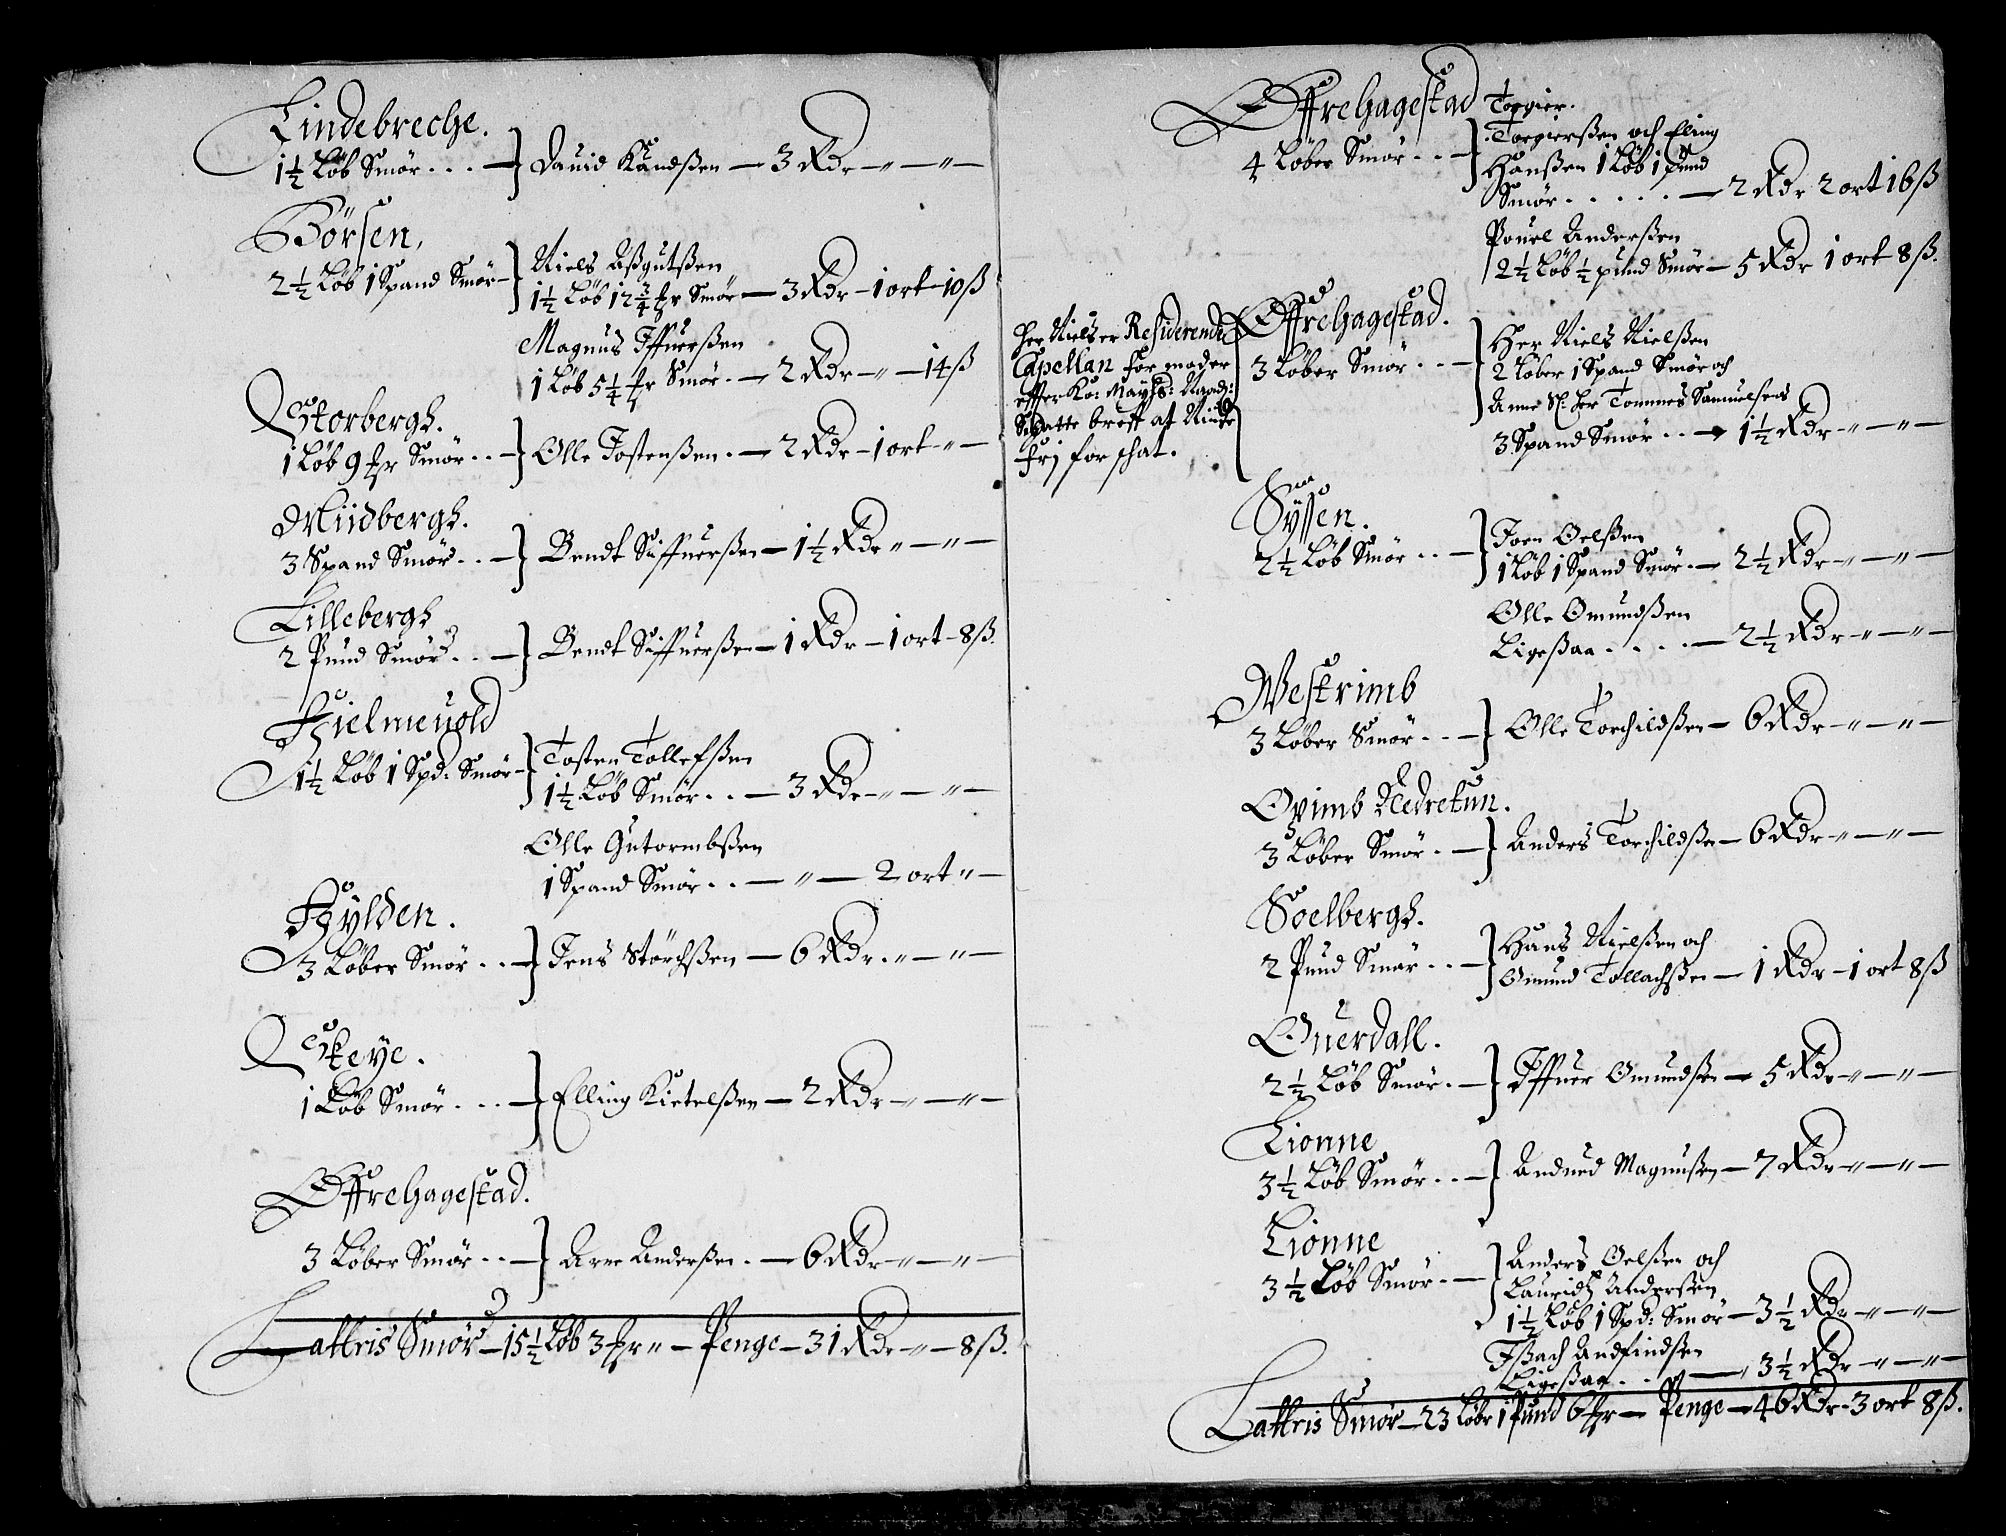 Lindebreche.
1½ Løb Smør . . . — Dauid Knudßen — 3 Rdr — " — " —
Børsen,
2½ Løb 1 Spand Smør — Niels Aßgutßen
1½ Løb 12¾ mr Smør — 3 Rdr — 1 ort — 10 ß
Magnus Iffuerßen
1 Løb 5¼ mr Smør . — 2 Rdr — " — 14 ß
Storbergh.
1 Løb 9 mr Smør . . — Olle Jostenßen . — 2 Rdr — 1 ort — " —
Miidbergh.
3 Spand Smør . . — Bendt Siffuerßen — 1½ Rdr " — " —
Lillebergh
2 Pund Smør . . — Bendt Siffuerßen — 1 Rdr — 1 ort — 8 ß.
Hielmeuold
1½ Løb 1 Spd: Smør — Tosten Tollefßen
1½ Løb Smør . . — 3 Rdr — " — " —
Olle Gutormbßen
1 Spand Smør . . — " — 2 ort " —
Hylden.
3 Løber Smør . . — Jens Størchßen — 6 Rdr . " — " —
Skeye.
1 Løb Smør . . . — Elling Kietelßen — 2 Rdr — " — " —
Offrehagestad.
3 Løber Smør . . — Arne Anderßen . — 6 Rdr — " — " —
Lattris Smør — 15½ Løb 3 mr " — Penge — 31 Rdr — " — 8 ß.
Offrehagestad
4 Løber Smør . . — Torgier
Torgierßen och Elling
Hanßen 1 Løb 1 pund
Smør . . . . . — 2 Rdr 2 ort 16 ß
Pouel Anderßen
2½ Løb ½ pund Smør — 5 Rdr 1 ort 8 ß.
Her Niels er Residerende
Capellan formoder
effter Ko: Mayts: Naad:
Schatte breff at Niude
Frj for schat.
Offrehagestad.
3 Løber Smør . . — Her Niels Nielßen
2 Løber 1 Spand Smør och
Anne Sl: her Tommes Samuelsens
3 Spand Smør . . — 1½ Rdr — " — " —
Syssen.
2½ Løb Smør . . — Joen Oelßen
1 Løb 1 Spand Smør . — 2½ Rdr — " — " —
Olle Omundßen
Ligeßaa . . . . — 2½ Rdr — " — " —
Westrimb
3 Løber Smør . . — Olle Torchildßen — 6 Rdr — " — " —
Øvimb Nedretun.
3 Løber Smør . — Anders Torchildßen — 6 Rdr — " — " —
Soelbergh.
2 Pund Smør . . — Hans Nielßen och
Omund Tollachßen — 1 Rdr — 1 ort 8 ß
Ouerdall.
2½ Løb Smør . — Iffuer Omundßen — 5 Rdr — " — " —
Lionne
3½ Løb Smør . . — Andued Magnußen — 7 Rdr — " — " —
Lionne
3½ Løb Smør . — Anders Oelßen och
Lauridtz Anderßen
1½ Løb 1 Spd: Smør — 3½ Rdr — " — " —
Ißach Andfindßen
Ligeßaa . . . — 3½ Rdr — " — " —
Lattris Smør — 23 Løbr 1 Pund 6 mr — Penge — 46 Rdr — 3 ort 8 ß.